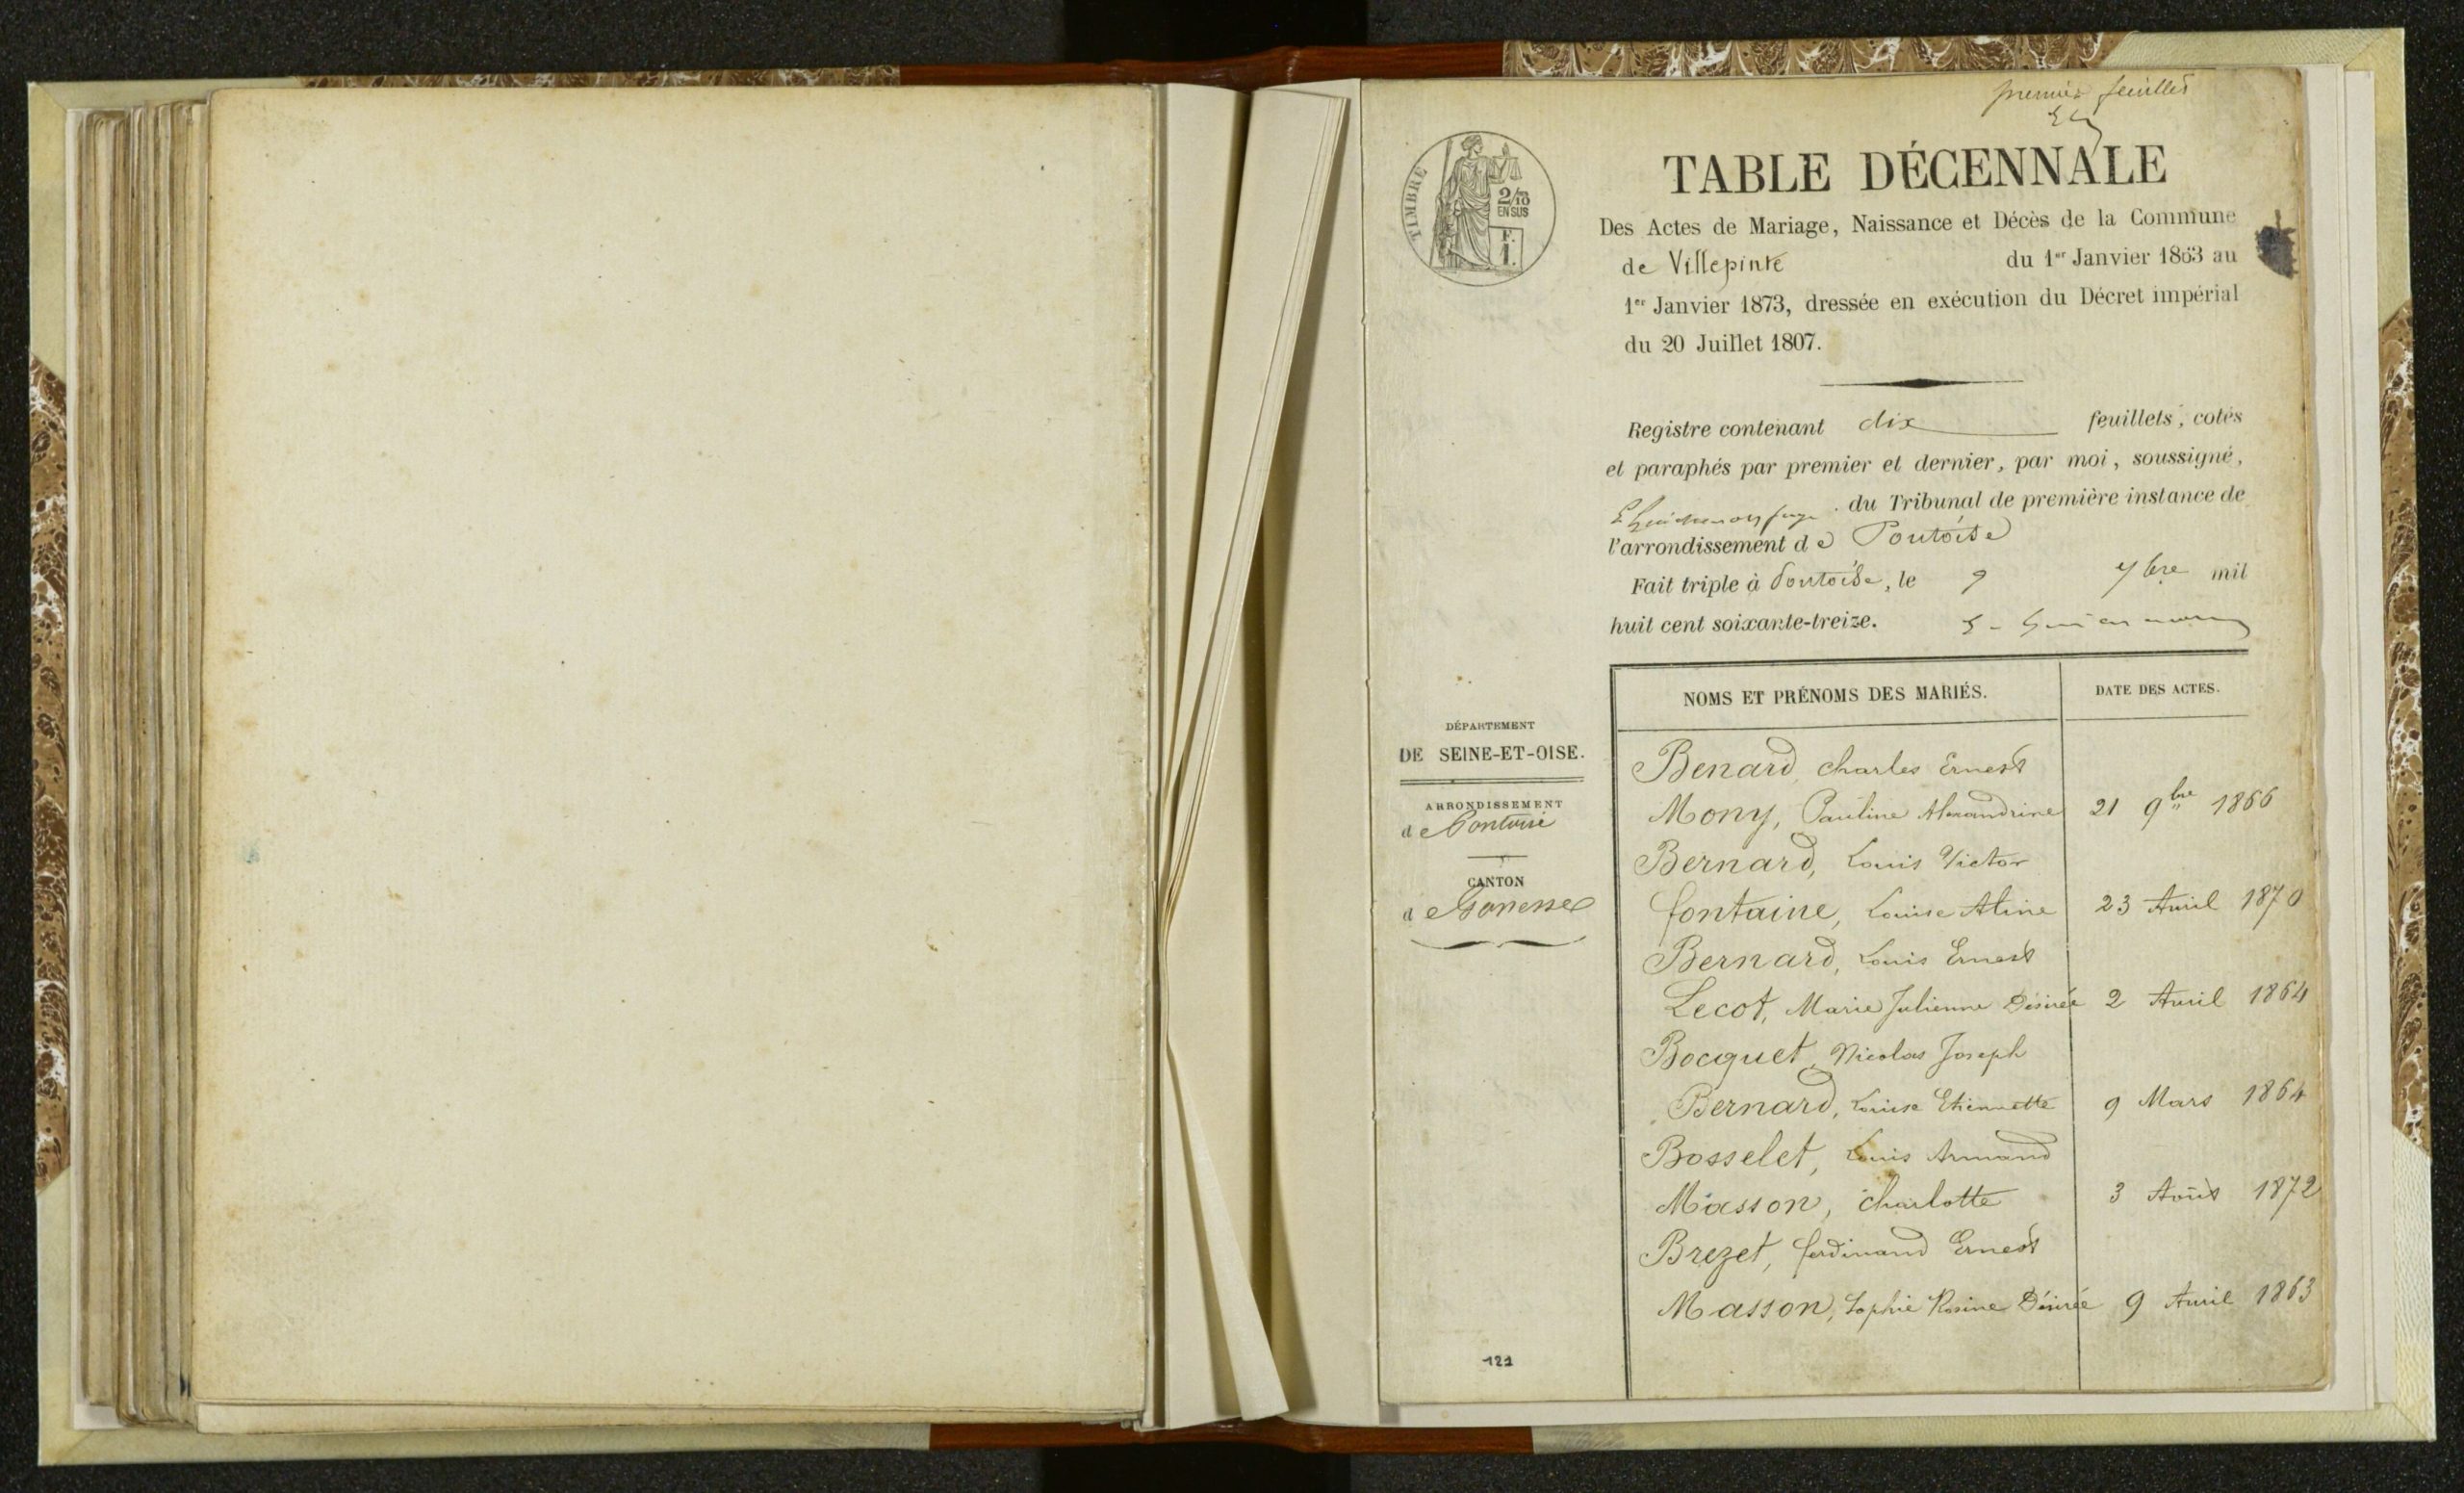 premier feuillet
TIMBRE
2/10
EN SUS
F.
1.
TABLE DÉCENNALE
Des Actes de Mariage, Naissance et Décès de la Commune
de Villepinte du 1er Janvier 1863 au
1er Janvier 1873, dressée en exécution du Décret impérial
du 20 Juillet 1807.
Registre contenant dix feuillets, cotés
et paraphés par premier et dernier, par moi, soussigné,
juge du Tribunal de première instance de
l'arrondissement de Pontoise
Fait triple à Pontoise, le 9 7bre mil
huit cent soixante-treize.
DÉPARTEMENT
DE SEINE-ET-OISE.
ARRONDISSEMENT
de Pontoise
CANTON
de Gonesse
NOMS ET PRÉNOMS DES MARIÉS. DATE DES ACTES.
Benard, Charles Ernest
Mony, Pauline Alexandrine 21 9bre 1866
Bernard, Louis Victor
fontaine, Louise Aline 23 Avril 1870
Bernard, Louis Ernest
Lecot, Marie Julienne Désirée 2 Avril 1864
Bocquet, Nicolas Joseph
Bernard, Louise Etiennette 9 Mars 1864
Bosselet, Louis Armand
Masson, Charlotte 3 Août 1872
Brezet, ferdinand Ernest
Masson, Sophie Rosine Désirée 9 Avril 1863
121